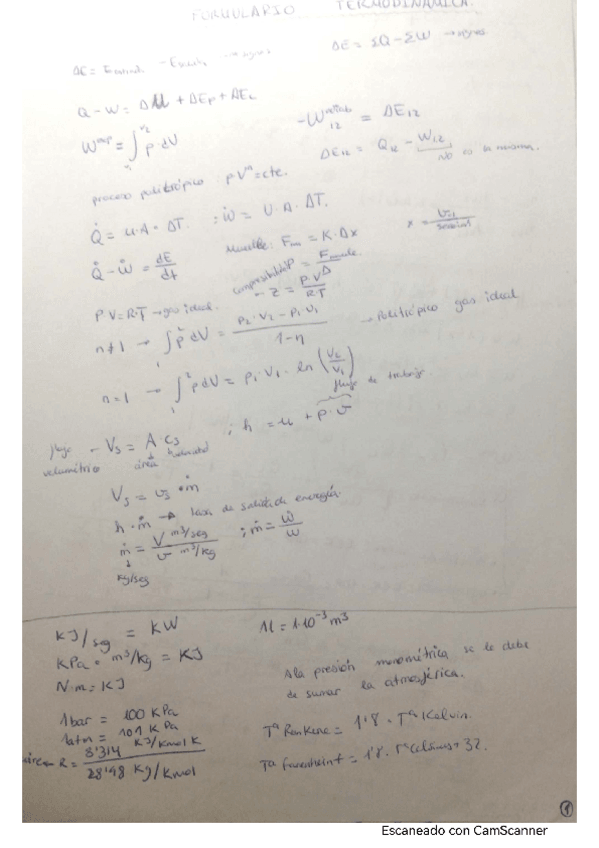 FORMULARIO TERMODINÁMICA.
ΔE = Eentrada - Esalida → signos
ΔE = ΣQ - ΣW → signos
Q - W = ΔU + ΔEp + ΔEc
W^exp = ∫ p·dV
-W12 = ΔE12
ΔE12 = Q12 - W12
no es la misma.
proceso politrópico : p·Vⁿ = cte.
Q̇ = U·A·ΔT. ; Ẇ = U·A·ΔT.
Q̇ - Ẇ = dE/dt
Muelle: Fm = K·Δx
P·V = R·T → gas ideal.
z = P·V/R·T
n≠1 → ∫₁² p dV = (P2·V2 - P1·V1)/(1-n) → Politrópico gas ideal
n=1 → ∫₁² p dV = P1·V1·ln(V2/V1)
flujo de trabajo.
flujo volumétrico - V̇s = A·cs ; h = u + p·v
área velocidad
V̇s = vs·ṁ
h·ṁ → tasa de salida de energía.
ṁ = V̇ m³/seg / v m³/kg ; ṁ = Ẇ/w
↓
kg/seg
KJ/seg = KW
1l = 1·10⁻³ m³
KPa · m³/kg = KJ
N·m = KJ
A la presión manométrica se le debe
de sumar la atmosférica.
1bar = 100 KPa
1atm = 101 KPa
R = 8'314 KJ/Kmol K / 28'48 Kg/Kmol
Tª Rankine = 1'8 · Tª Kelvin.
Tª Farenheint = 1'8 · Tª Celsius + 32.
1
Escaneado con CamScanner